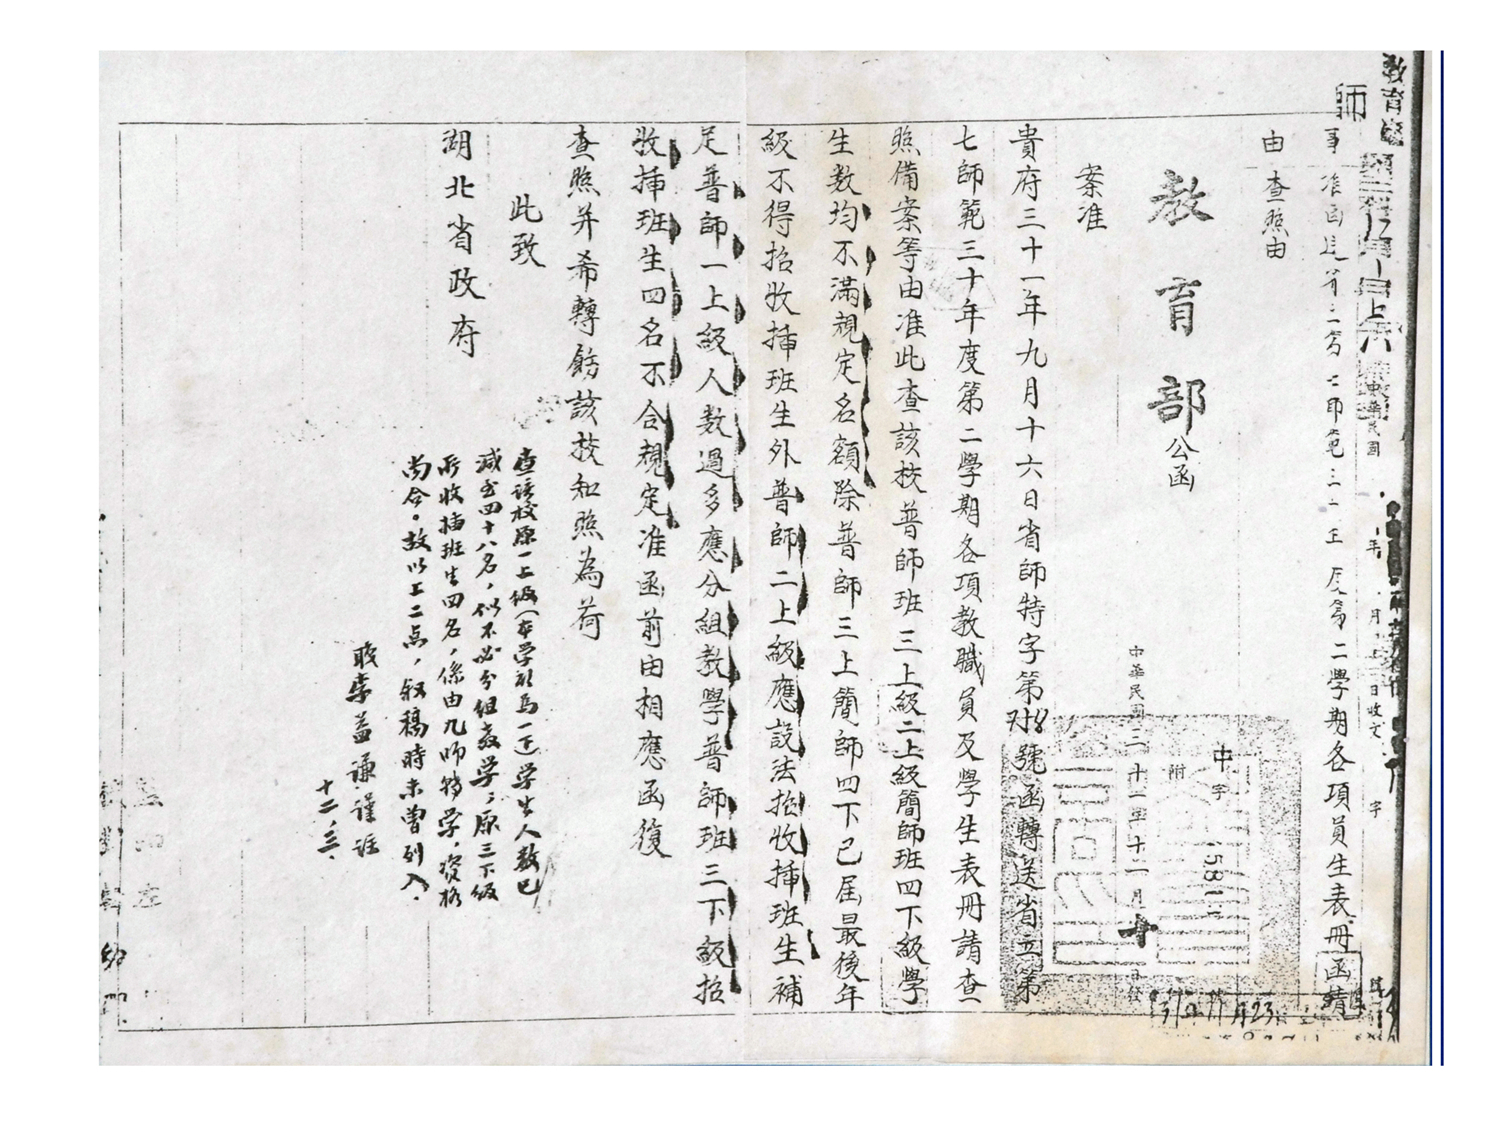 師
事准函送省立第七師範三十年度第二學期各項員生表冊函請
由查照由
教育部公函
中字
附
5811
中華民國三十一年十二月十日發
案准
貴府三十一年九月十六日省師特字第號函轉送省立第
七師範三十年度第二學期各項教職員及學生表冊請查
照備案等由准此查該校普師班三上級二上級簡師班四下級學
生數均不滿規定名額除普師三上簡師四下已屆最後年
級不得招收插班生外普師二上級應設法招收插班生補
足普師一上級人數過多應分組教學普師班三下級招
收插班生四名不合規定准函前由相應函復
查照并希轉飭該校知照為荷
此致
湖北省政府
查該校原一上級(本學期為一下)學生人數已
減至四十八名,似不必分組教學;原三下級
所收插班生四名,係由九師轉學,資格
尚合。故以上二点,叙稿時未曾列入.
職李益謙謹註
十二、三、